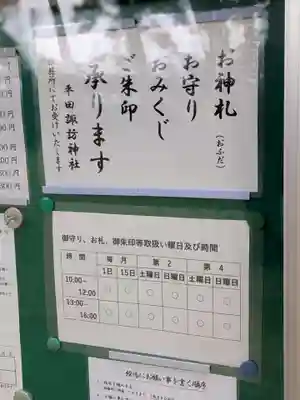 お神札(おふだ)
お守り
おみくじ
ご朱印
承ります
平田諏訪神社
務所にてお受けいたします
御守り、お札、御朱印等取扱い曜日及び時間
時間 毎月 第2 第4
1日 15日 土曜日 日曜日 土曜日 日曜日
10:00~12:00 ○ ○ ○ ○ ○ ○
13:00~16:00 ○ ○ ○ ○ ○ ○
絵馬にお願い事を書く順序